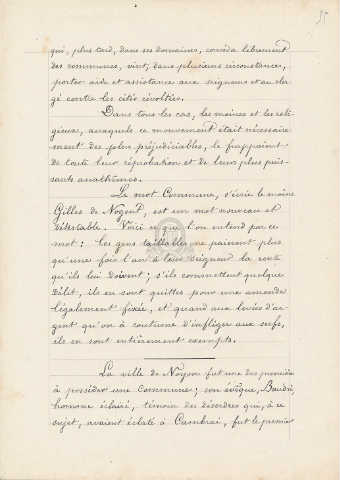 35
qui, plus tard, dans ses domaines, concéda librement
des communes, vint, dans plusieurs circonstances,
porter aide et assistance aux seigneurs et au cler-
gé contre les cités révoltées.
Dans tous les cas, les moines et les reli-
gieux, auxquels ce mouvement était nécessaire
ment des plus préjudiciables, le frappaient
de toute leur réprobation et de leurs plus puis-
sants anathèmes.
Le mot Commune, s'écrie le moine
Gilles de Nogent, est un mot nouveau et
détestable. Voici ce que l'on entend par ce
mot: les gens taillables ne paieront plus
qu'une fois l'an à leur seigneur la rente
qu'ils lui doivent; s'ils commettent quelque
délit, ils en sont quittes pour une amende
légalement fixée, et quand aux levées d'ar-
gent qu'on a coutume d'infliger aux serfs,
ils en sont entièrement exempts.
La ville de Noyon fut une des premières
à posséder une Commune; son évêque, Baudri,
homme éclairé, témoin des désordres qui, à ce
sujet, avaient éclaté à Cambrai, fut le premier